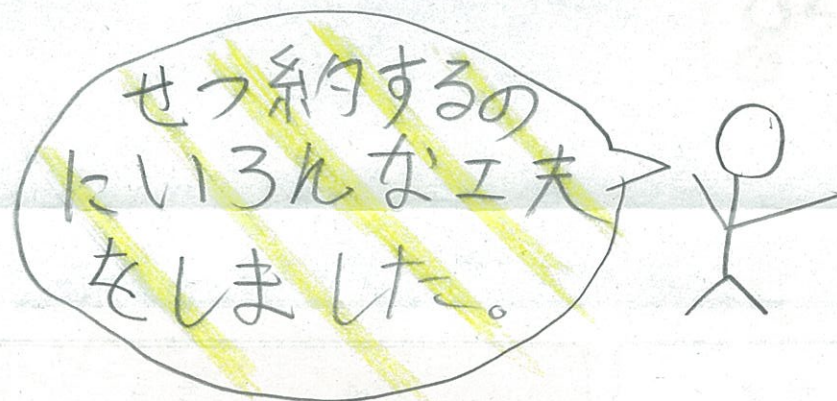 せつ約するの
にいろんな工夫
をしました。